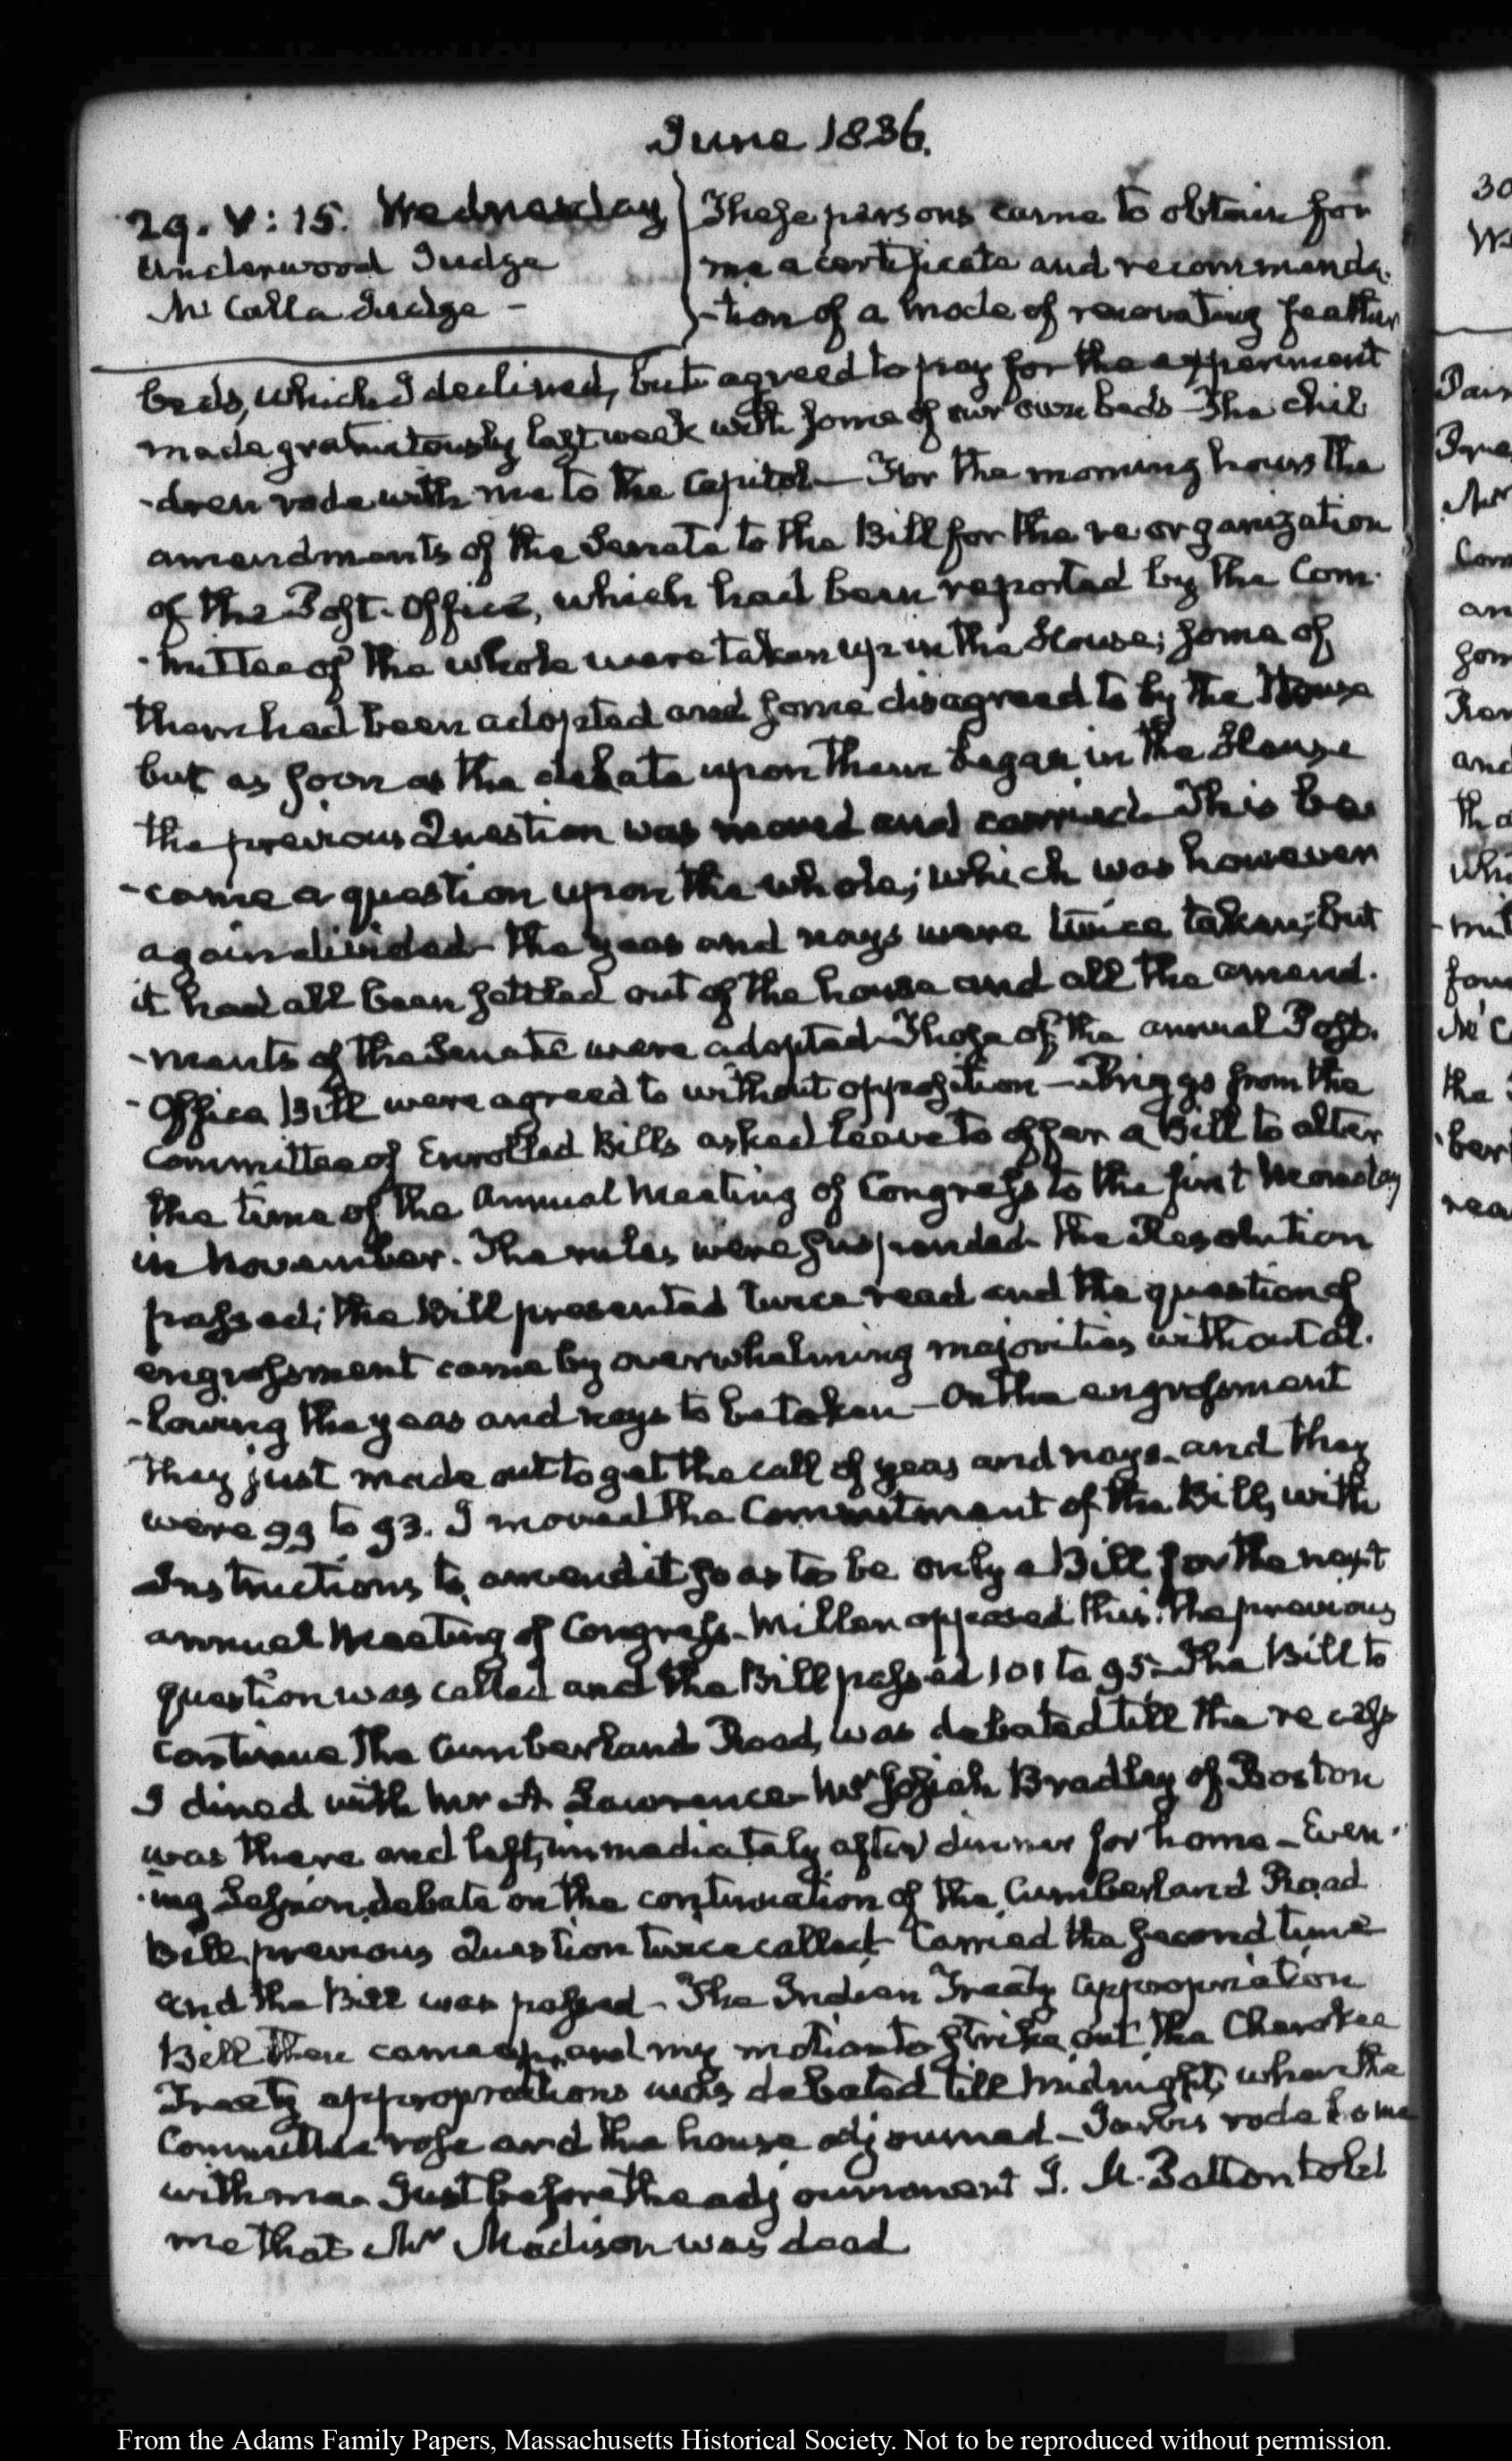 June 1836.
29. V: 15. Wednesday
Underwood Judge
McCalla Judge –
These persons came to obtain for
me a certificate and recommenda-
-tion of a mode of renovating feather
beds, which I declined, but agreed to pay for the experiment
made gratuitously last week with some of our own beds – The chil
-dren rode with me to the Capitol – For the morning hours the
amendments of the Senate to the Bill for the re organization
of the Post-Office, which had been reported by the Com-
-mittee of the whole were taken up in the House; some of
them had been adopted and some disagreed to by the House
but as soon as the debate upon them began in the House
the previous Question was moved and carried – This be-
-came a question upon the whole; which was however
again divided – the yeas and nays were twice taken; but
it had all been settled out of the house and all the amend-
-ments of the Senate were adopted – Those of the annual Post-
-Office Bill were agreed to without opposition – Briggs from the
Committee of Enrolled Bills asked leave to offer a Bill to alter
the time of the Annual Meeting of Congress to the first Monday
in November. The rules were suspended – the Resolution
passed; the Bill presented twice read and the question of
engrossment came by overwhelming majorities without al-
-lowing the yeas and nays to be taken – On the engrossment
they just made out to get the call of yeas and nays – and they
were 99 to 93. I moved the Commitment of the Bill, with
Instructions to amend it so as to be only a Bill for the next
annual Meeting of Congress – Miller opposed this. The previous
question was called and the Bill passed 101 to 95 – The Bill to
continue the Cumberland Road, was debated till the recess
I dined with Mr A Lawrence – Mr Josiah Bradley of Boston
was there and left, immediately after dinner for home – Even-
-ing Session, debate on the continuation of the Cumberland Road
Bill, previous Question twice called – Carried the second time
and the Bill was passed – The Indian Treaty appropriation
Bill then came up, and my motion to strike out the Cherokee
Treaty appropriations was debated till midnight, when the
Committee rose and the house adjourned – Jarvis rode home
with me – Just before the adjournment J. M. Patton told
me that Mr Madison was dead
30
From the Adams Family Papers, Massachusetts Historical Society. Not to be reproduced without permission.